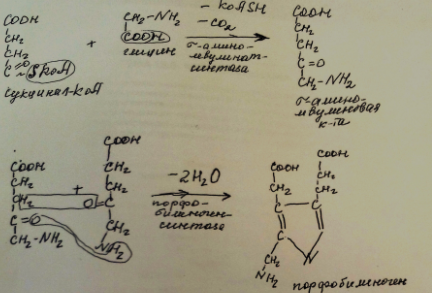 COOH
CH₂
CH₂
C=O
~SKoA
сукцинил-КоА
+
CH₂-NH₂
COOH
глицин
- KoASH
- CO₂
σ-амино-
левулинат-
синтаза
COOH
CH₂
CH₂
C=O
CH₂-NH₂
σ-амино-
левулиновая
к-та
COOH
CH₂
CH₂
C=O
CH₂-NH₂
+
COOH
CH₂
CH₂
O=C
CH₂
NH₂
-2H₂O
порфо-
билиноген-
синтаза
COOH
CH₂
C
C
CH₂
NH₂
COOH
CH₂
CH₂
C
C
N
порфобилиноген